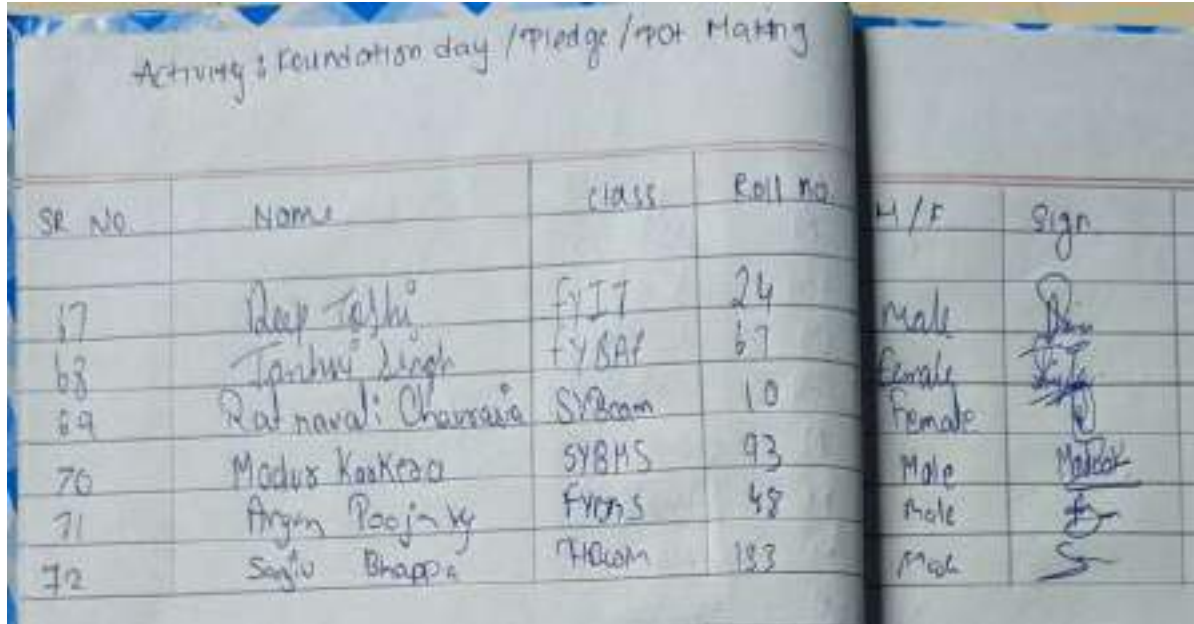 Activity : Foundation day / Pledge / POt Making
SR No. Name class Roll no. M/F Sign
67 Deep Joshi FYIT 24 Male
68 Singh FYBAF 67 Female
69 Ratnavali Chaurasia SYBcom 10 Female
70 Madur SYBMS 93 Male
71 FYBMS 48 Male
72 Bhappa 193 Male